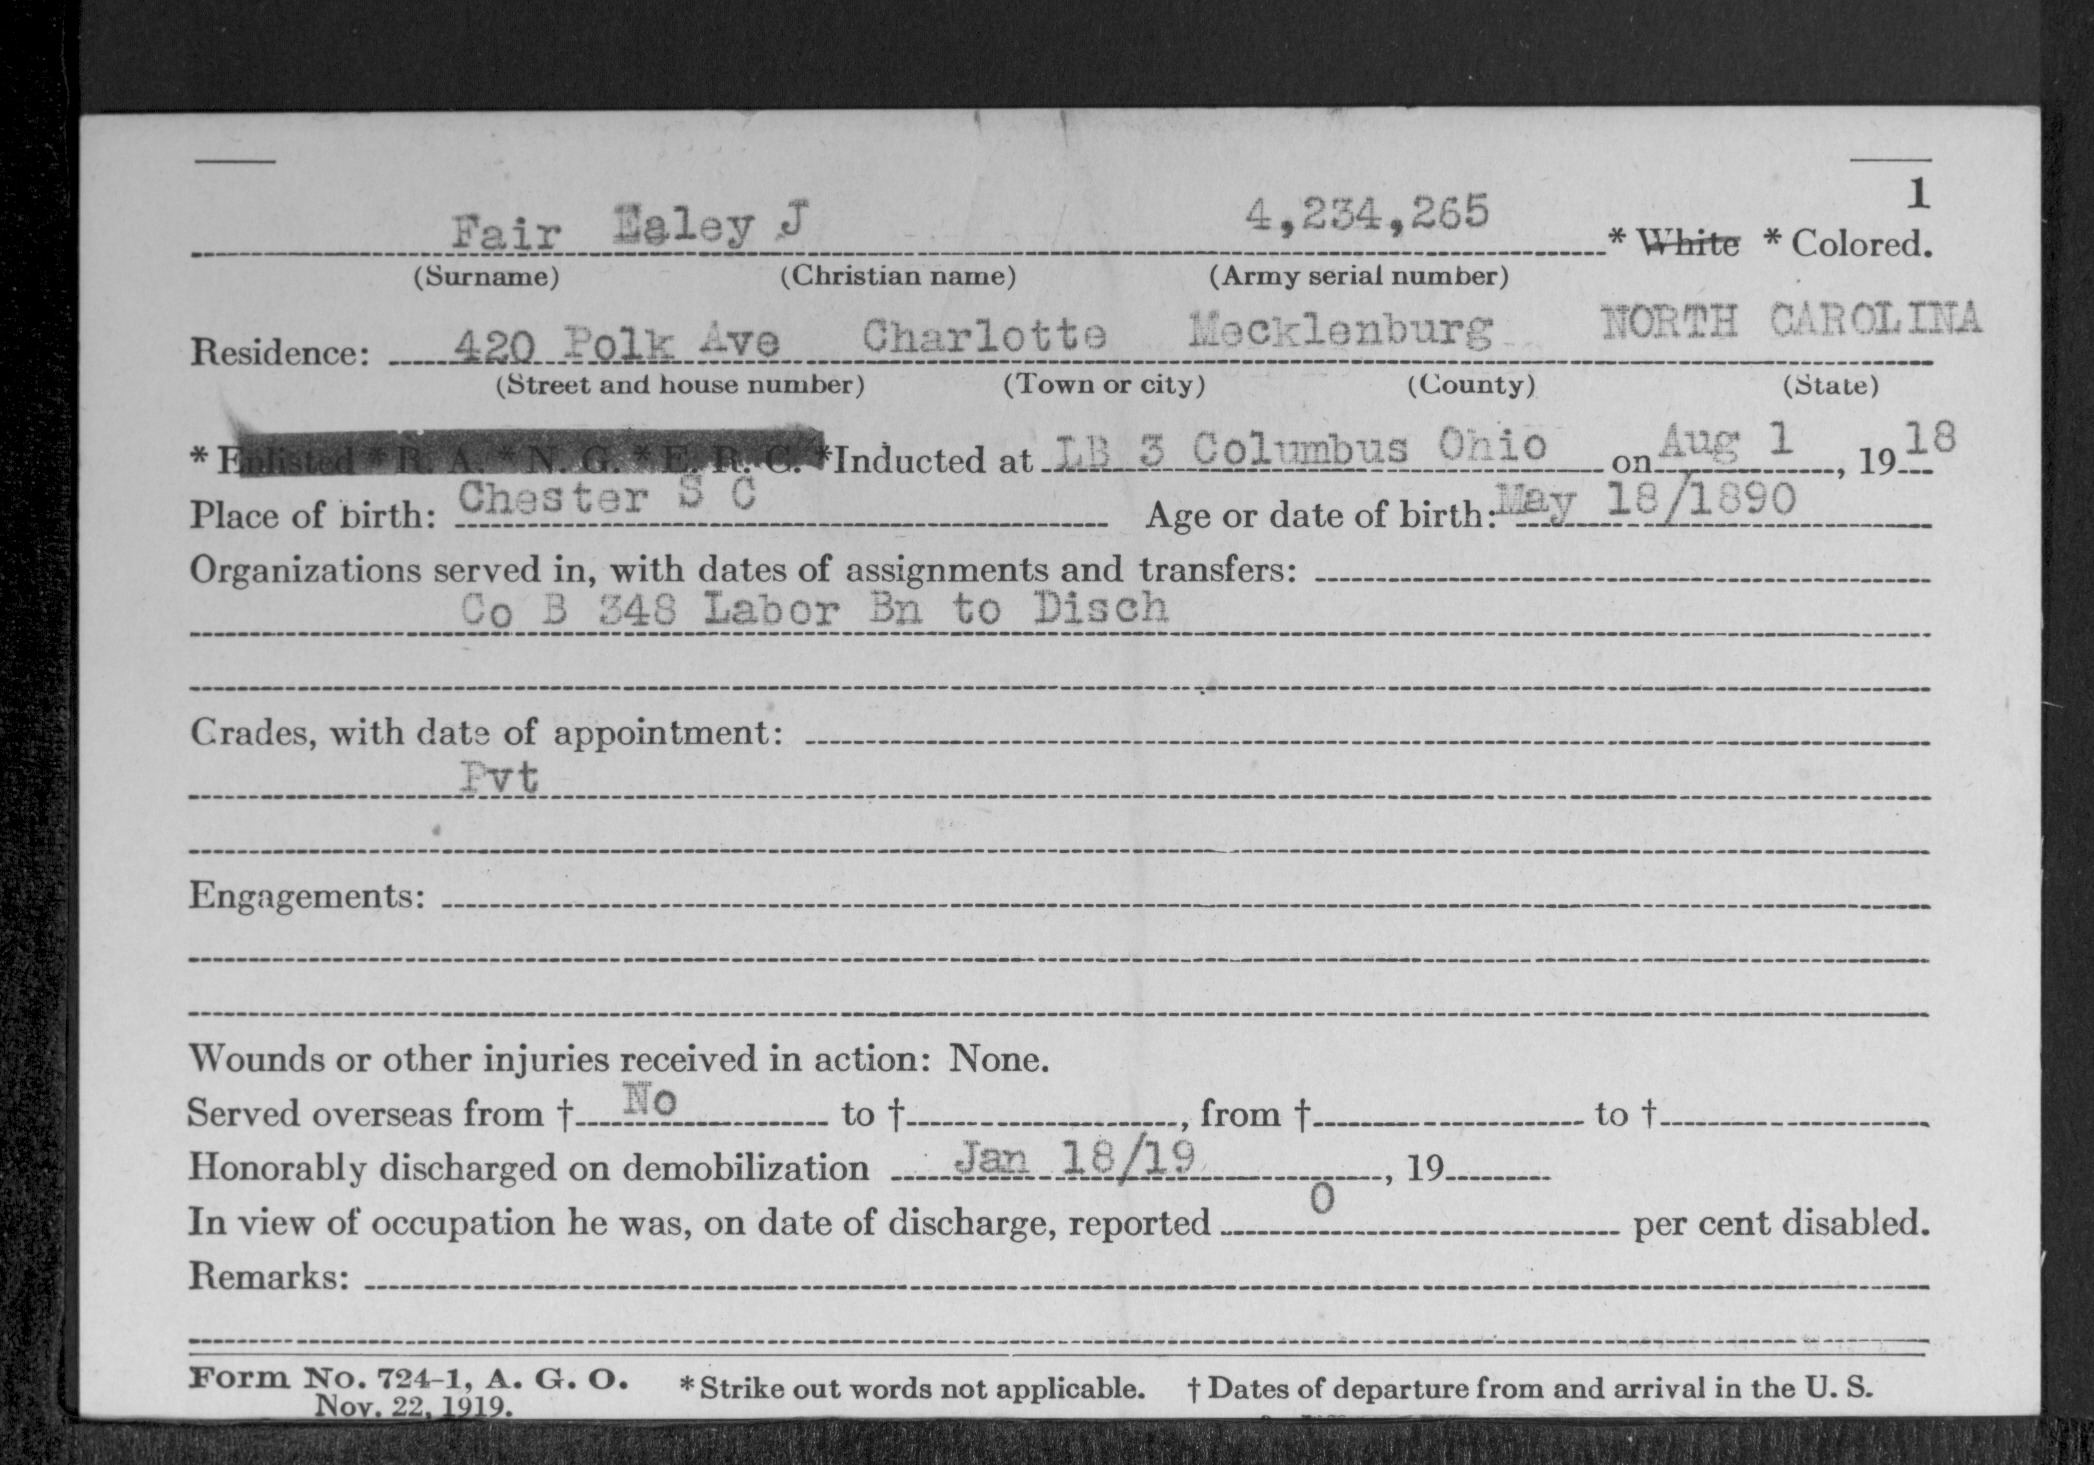 1
Fair Ealey J 4,234,265 * White * Colored.
(Surname) (Christian name) (Army serial number)
Residence: 420 Polk Ave Charlotte Mecklenburg NORTH CAROLINA
(Street and house number) (Town or city) (County) (State)
* Enlisted * R. A. * N. G. * E. R. C. *Inducted at LB 3 Columbus Ohio on Aug 1, 1918
Place of birth: Chester S C Age or date of birth: May 18/1890
Organizations served in, with dates of assignments and transfers:
Co B 348 Labor Bn to Disch
Grades, with date of appointment:
Pvt
Engagements:
Wounds or other injuries received in action: None.
Served overseas from † No to †, from † to †
Honorably discharged on demobilization Jan 18/19, 19
In view of occupation he was, on date of discharge, reported 0 per cent disabled.
Remarks:
Form No. 724-1, A. G. O. * Strike out words not applicable. † Dates of departure from and arrival in the U. S.
Nov. 22, 1919.